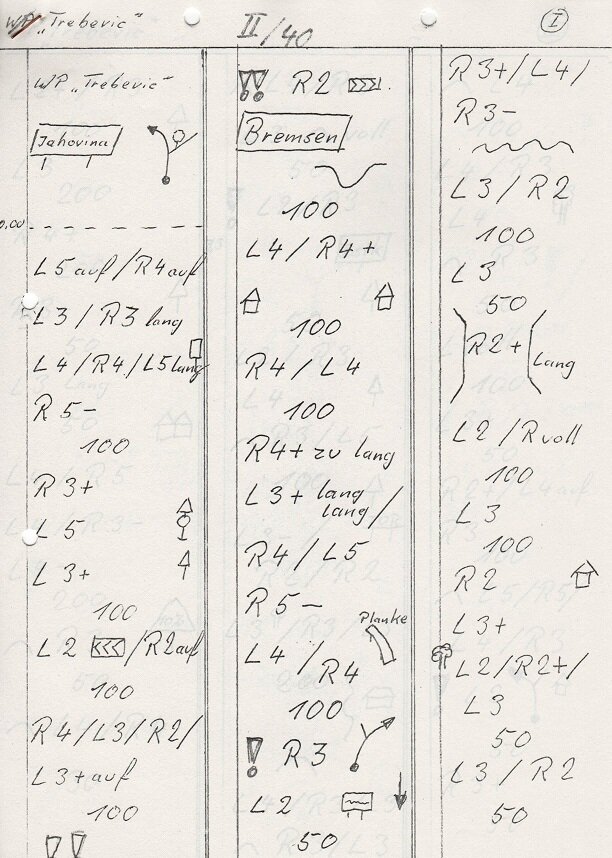 WP „Trebevic“
II/40
I
WP „Trebevic“
Jahovina
0,00
L5 auf / R4 auf
L3 / R3 lang
L4 / R4 / L5 lang
R5-
100
R3+
L5
L3+
100
L2 / R2 auf
100
R4 / L3 / R2 /
L3+ auf
100
!! R2
Bremsen
100
L4 / R4+
100
R4 / L4
100
R4+ zu lang
L3+ lang
lang /
R4 / L5
R5-
Planke
L4 / R4
100
! R3
L2
50
R3+ / L4 /
R3-
L3 / R2
100
L3
50
R2+ lang
L2 / R voll
100
L3
100
R2
L3+
L2 / R2+ /
L3
50
L3 / R2
50